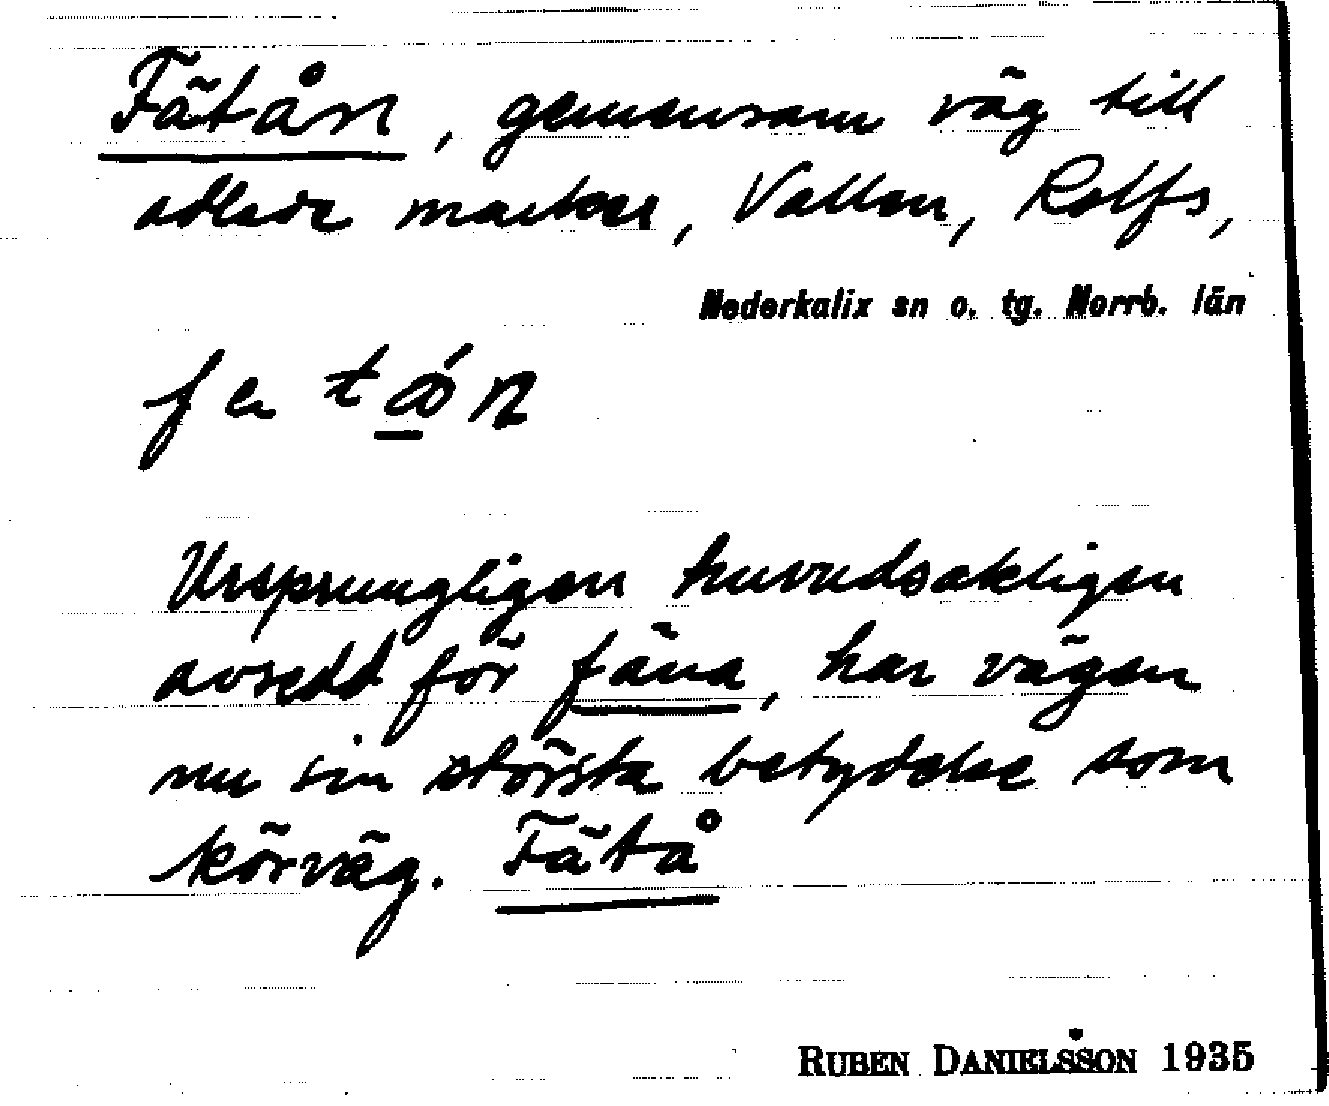 Fätån, gemensam väg till
odlade marker, Vallen, Rolfs,
Nederkalix sn o. tg. Norrb. län
Ursprungligen huvudsakligen
avsedd för fäna, har vägen
nu sin största betydelse som
körväg. Fätå
RUBEN DANIELSSON 1935